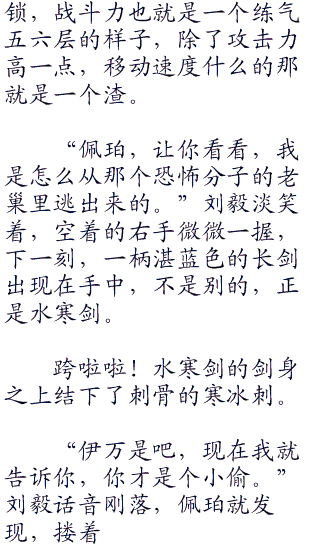 锁，战斗力也就是一个练气
五六层的样子，除了攻击力
高一点，移动速度什么的那
就是一个渣。
“佩珀，让你看看，我
是怎么从那个恐怖分子的老
巢里逃出来的。”刘毅淡笑
着，空着的右手微微一握，
下一刻，一柄湛蓝色的长剑
出现在手中，不是别的，正
是水寒剑。
跨啦啦！水寒剑的剑身
之上结下了刺骨的寒冰刺。
“伊万是吧，现在我就
告诉你，你才是个小偷。”
刘毅话音刚落，佩珀就发
现，搂着